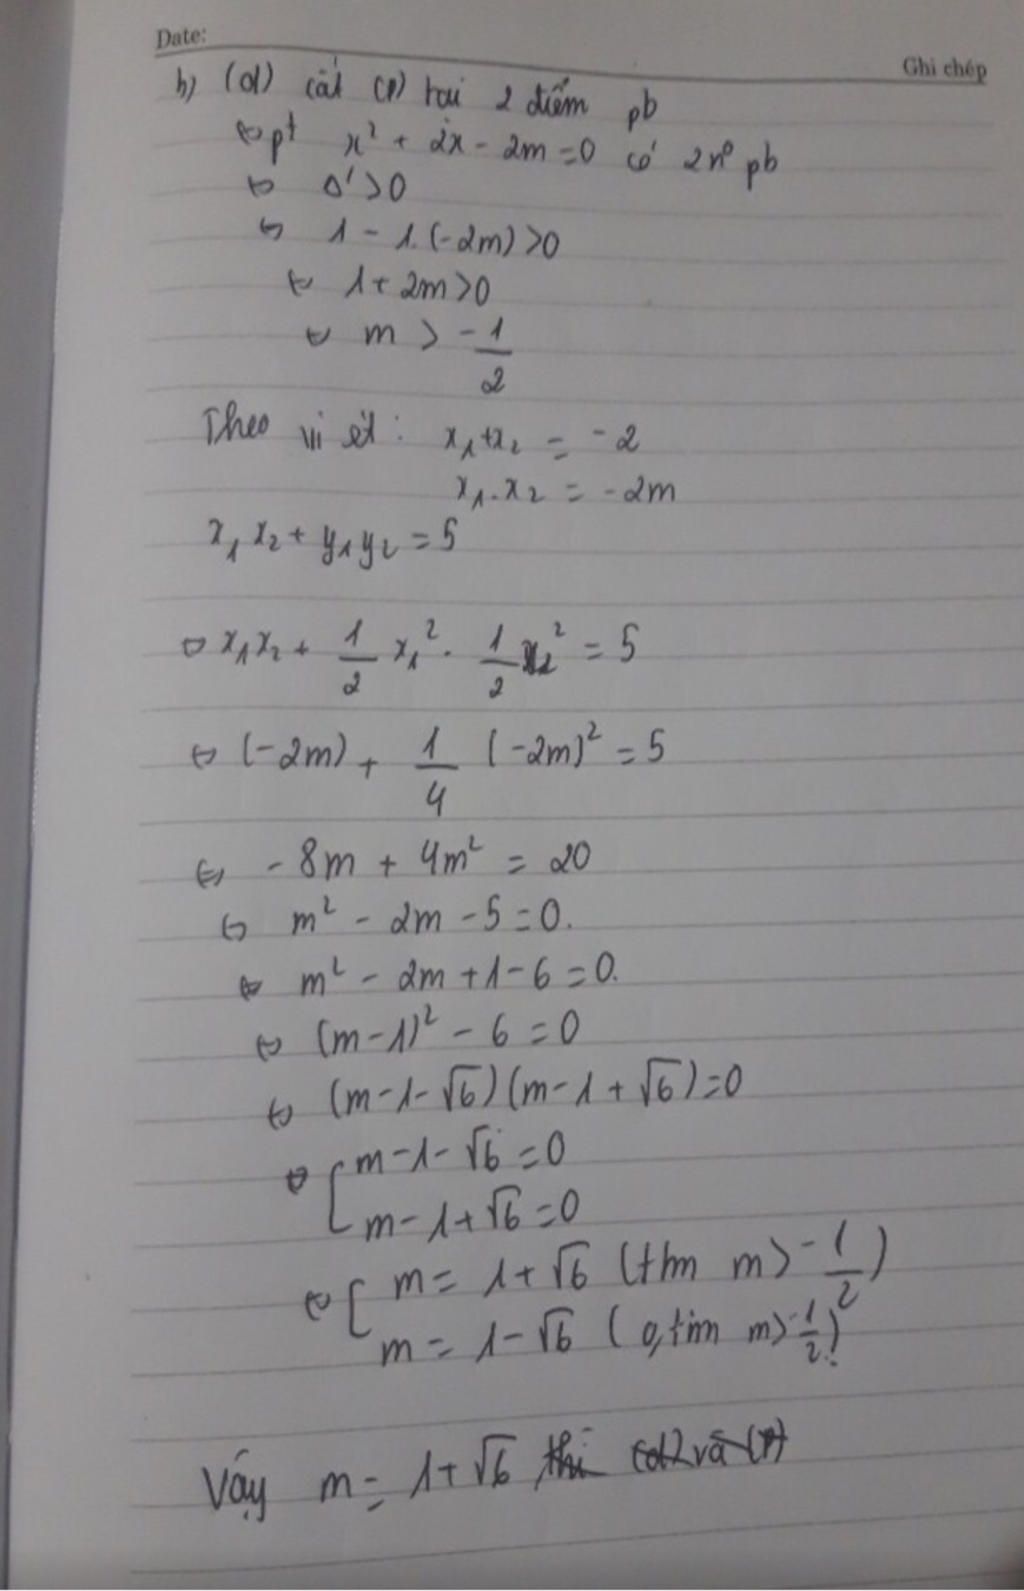 Date:
Ghi chép
b) (d) cắt (P) tại 2 điểm pb
⇔ pt x² + 2x - 2m = 0 có 2n⁰ pb
⇔ Δ' > 0
⇔ 1 - 1.(-2m) > 0
⇔ 1 + 2m > 0
⇔ m > -1/2
Theo vi ét: x₁+x₂ = -2
x₁.x₂ = -2m
x₁x₂ + y₁y₂ = 5
⇔ x₁x₂ + 1/2 x₁² . 1/2 x₂² = 5
⇔ (-2m) + 1/4 (-2m)² = 5
⇔ -8m + 4m² = 20
⇔ m² - 2m - 5 = 0.
⇔ m² - 2m + 1 - 6 = 0.
⇔ (m-1)² - 6 = 0
⇔ (m-1-√6)(m-1+√6) = 0
⇔ [ m-1-√6 = 0
m-1+√6 = 0
⇔ [ m = 1+√6 (thm m > -1/2)
m = 1-√6 (m > -1/2)
Vậy m = 1+√6 thì (d) và (P)